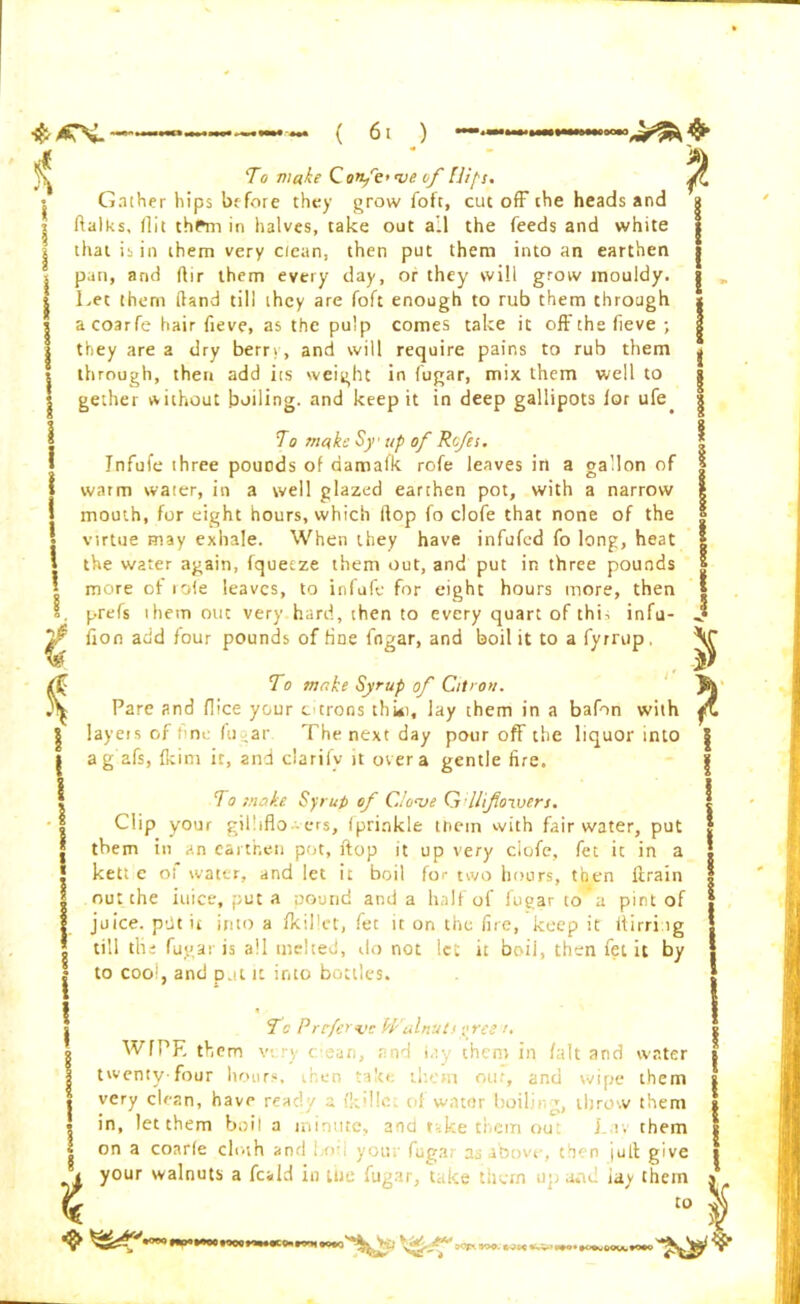 ( 61 )
To make Conſerve of Hips.
Gather hips before they grow ſoft, cut off the heads and
ſtalks, ſlit them in halves, take out all the ſeeds and white
that is in them very clean, then put them into an earthen
pan, and ſtir them every day, or they will grow mouldy.
Let them ſtand till they are ſoft enough to rub them through
a coarſe hair ſieve, as the pulp comes take it off the ſieve ;
they are a dry berry, and will require pains to rub them
through, then add its weight in ſugar, mix them well to
gether without boiling. and keep it in deep gallipots for uſe
To make Sy up of Roſes.
Infuſe three pounds of damaſk roſe leaves in a gallon of
warm water, in a well glazed earthen pot, with a narrow
mouth, for eight hours, which ſtop ſo cloſe that none of the
virtue may exhale. When they have infuſed ſo long, heat
the water again, ſqueeze them out, and put in three pounds
more of roſe leaves, to infuſe for eight hours more, then
preſs them out very hard, then to every quart of this infu-
ſion add four pounds of fine ſugar, and boil it to a ſyrrup.
To make Syrup of Citron.
Pare and ſlice your citrons thin, lay them in a baſon with
layers of fine ſugar The next day pour off the liquor into
a g aſs, ſkim it, and clarify it over a gentle fire.
To make Syrup of Clove Gilliflowers.
Clip your gilliflowers, ſprinkle them with fair water, put
them in an earthen pot, ſtop it up very cloſe, ſet it in a
kettle of water, and let it boil for two hours, then ſtrain
out the juice, put a pound and a half of ſugar to a pint of
juice. put it into a ſkillet, ſet it on the fire, keep it ſtirring
till the ſugar is all melted, do not let it boil, then ſet it by
to cool, and put it into bottles.
To Preſerve Walnuts green.
WIPE them very clean, and lay them in ſalt and water
twenty-four hours, then take them out, and wipe them
very clean, have ready a ſkillet of water boiling, throw them
in, let them boil a minute, and take them out Lay them
on a coarſe cloth and boil your ſugar as above, then juſt give
your walnuts a ſcald in the ſugar, take them up and lay them
to